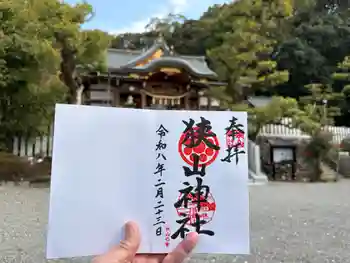 奉拝
狭山神社
令和八年二月二十三日